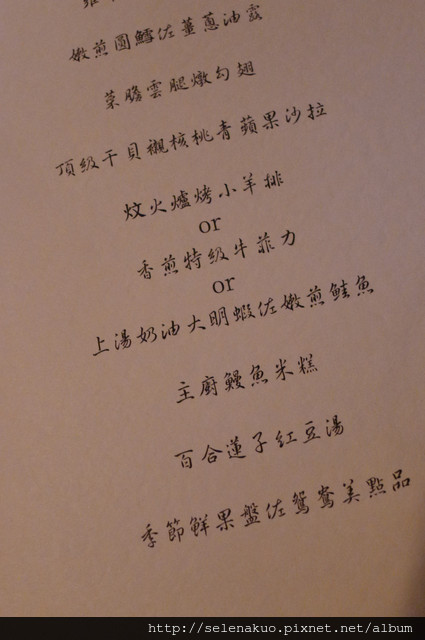 嫩煎圓鱈佐薑蔥油露
菜膽雲腿燉勾翅
頂級干貝襯核桃青蘋果沙拉
炆火爐烤小羊排
or
香煎特級牛菲力
or
上湯奶油大明蝦佐嫩煎鮭魚
主廚鰻魚米糕
百合蓮子紅豆湯
季節鮮果盤佐鴛鴦美點品
http://selenakuo.pixnet.net/album